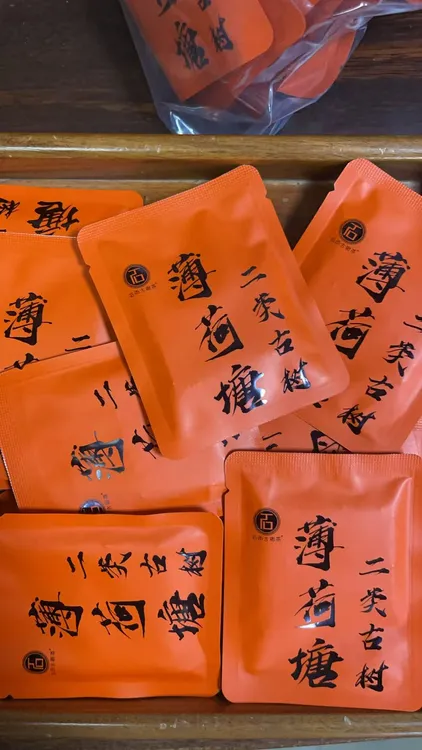 塘
树
塘
树
薄
二
薄荷塘
二类古树
薄荷
二类古树
二类
薄
二类古树
薄荷塘
薄荷塘
二类古树